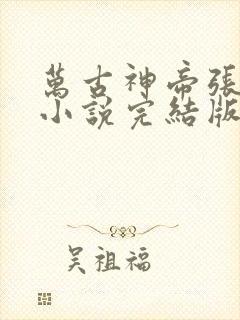 萬古神帝張
小說完結版
吳祖福